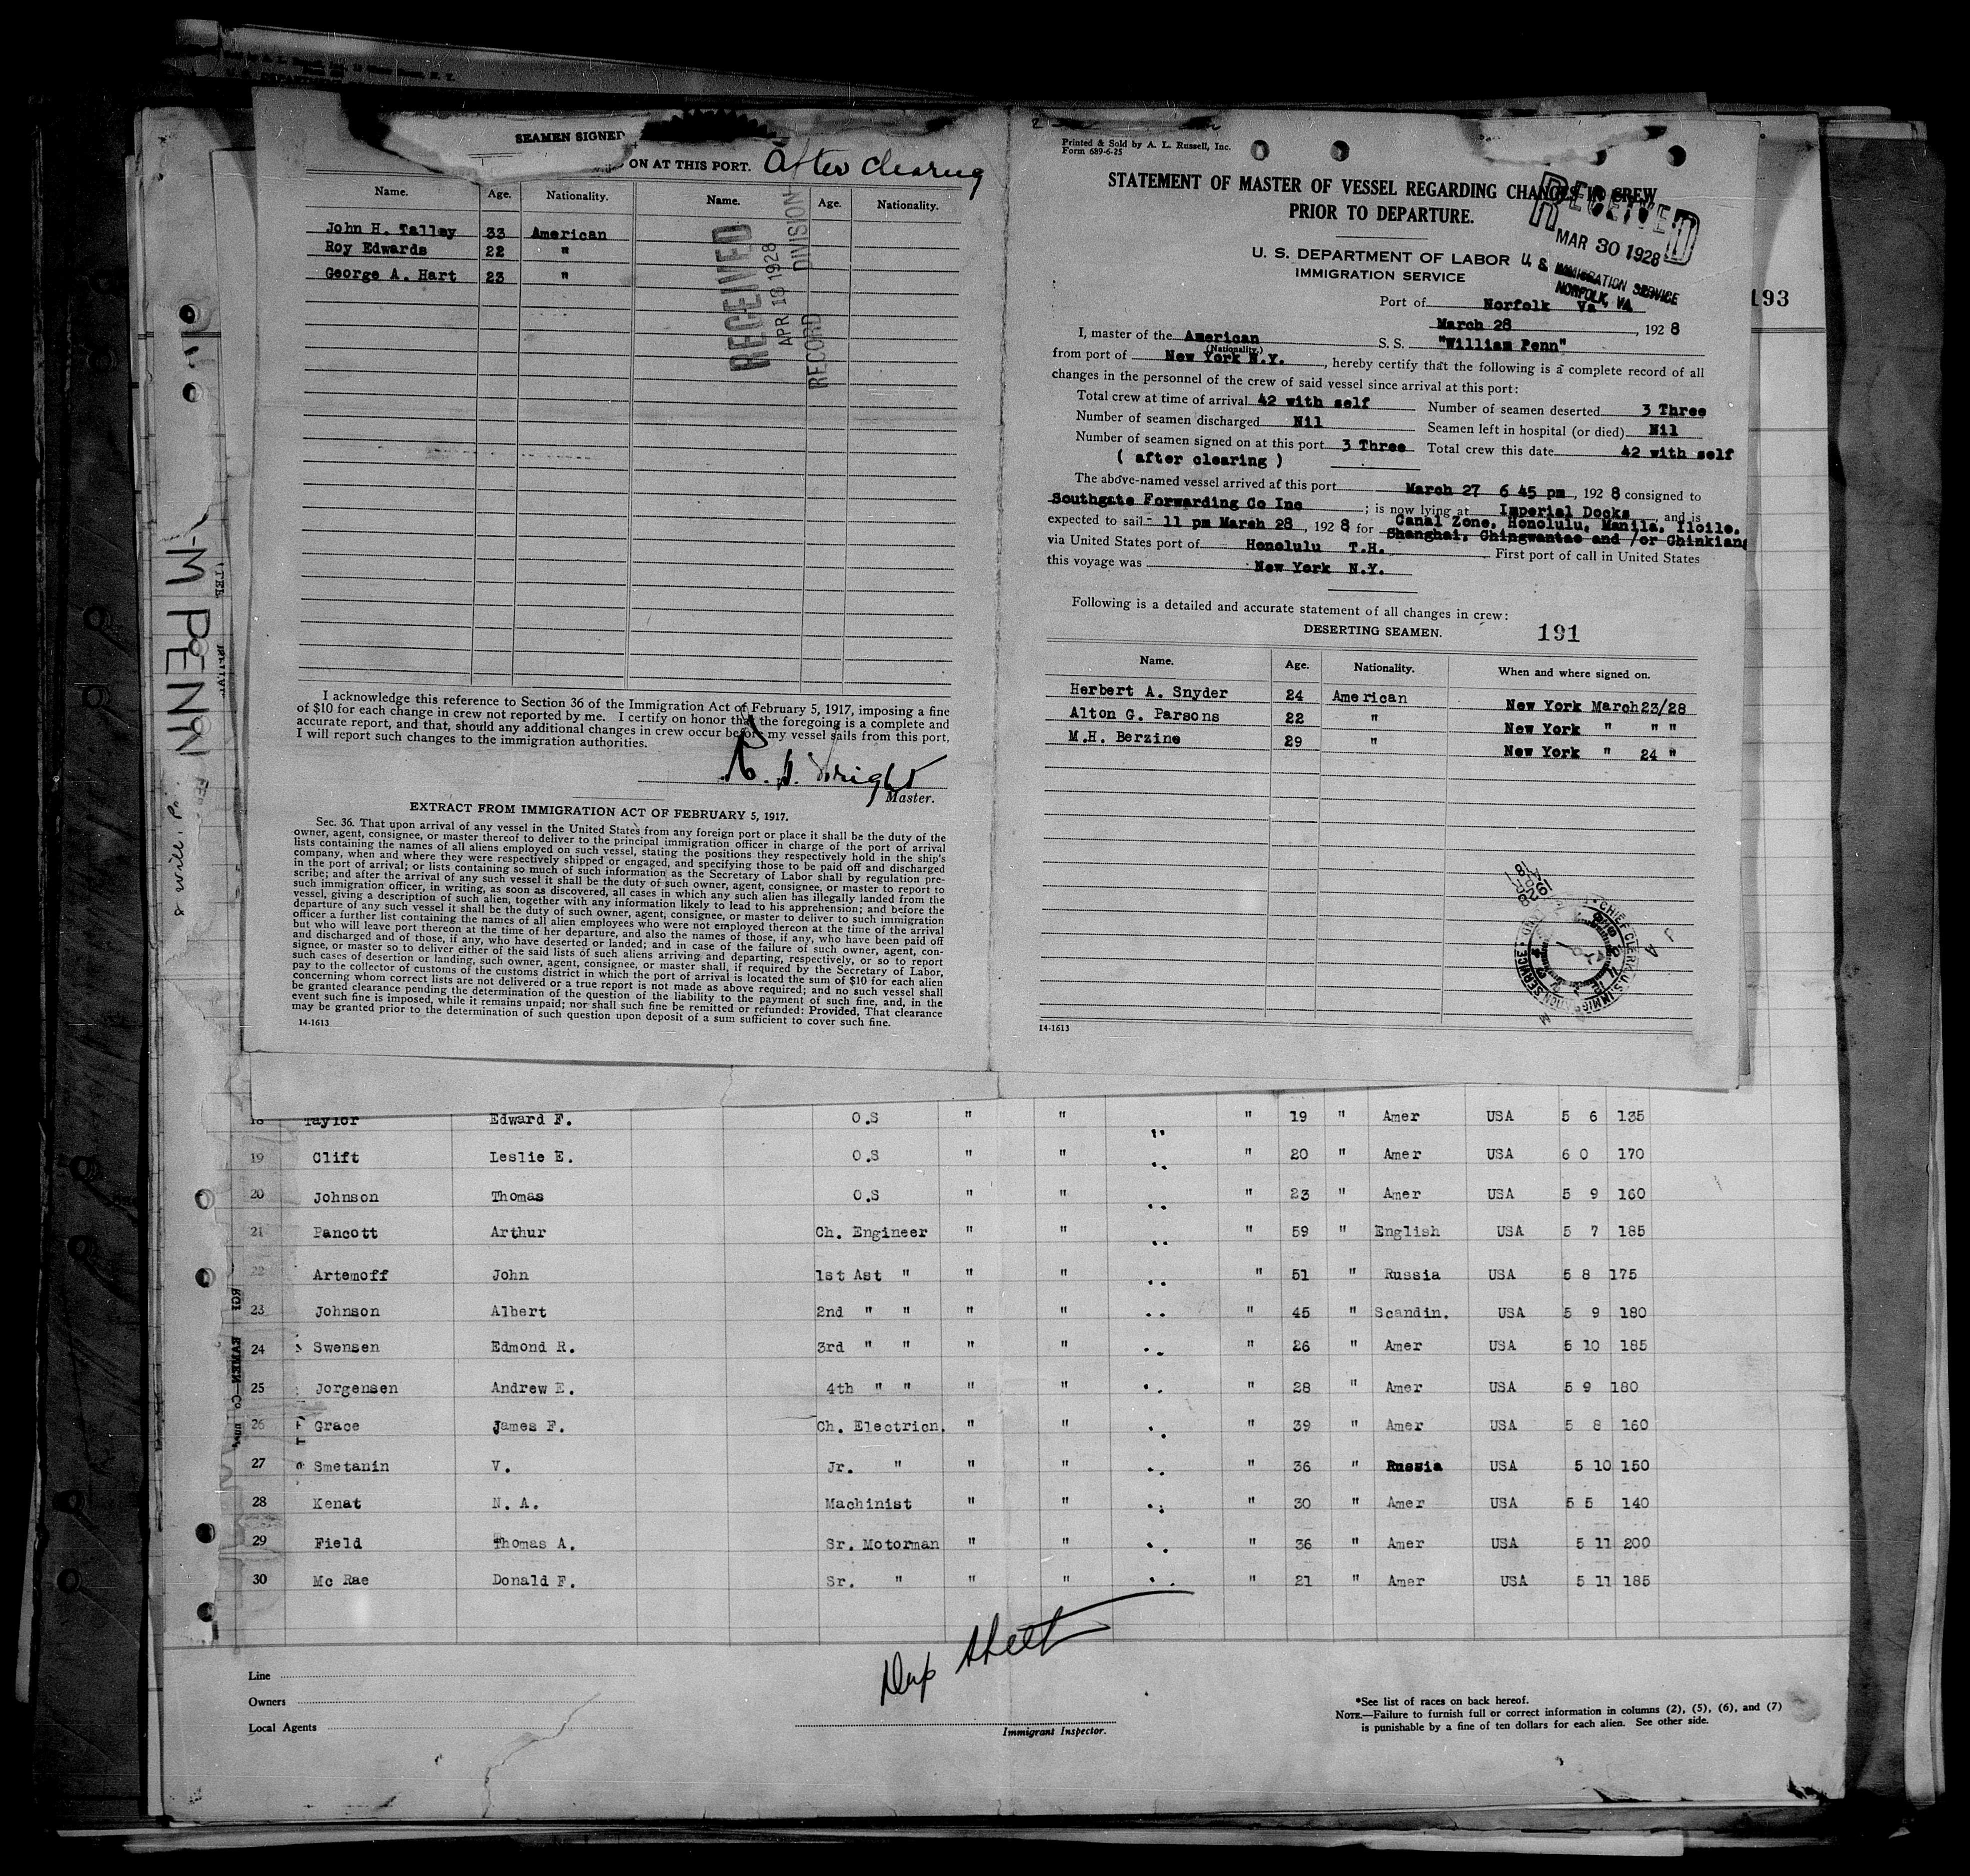 SEAMEN SIGNED
ON AT THIS PORT. After clearing
Name. Age. Nationality. Name. Age. Nationality.
John H. Talley 33 American
Roy Edwards 22 "
George A. Hart 23 "
RECEIVED
APR 18 1928
RECORD DIVISION
I acknowledge this reference to Section 36 of the Immigration Act of February 5, 1917, imposing a fine
of $10 for each change in crew not reported by me. I certify on honor that the foregoing is a complete and
accurate report, and that, should any additional changes in crew occur before my vessel sails from this port,
I will report such changes to the immigration authorities.
Wright
Master.
EXTRACT FROM IMMIGRATION ACT OF FEBRUARY 5, 1917.
Sec. 36. That upon arrival of any vessel in the United States from any foreign port or place it shall be the duty of the
owner, agent, consignee, or master thereof to deliver to the principal immigration officer in charge of the port of arrival
lists containing the names of all aliens employed on such vessel, stating the positions they respectively hold in the ship's
company, when and where they were respectively shipped or engaged, and specifying those to be paid off and discharged
in the port of arrival; or lists containing so much of such information as the Secretary of Labor shall by regulation pre-
scribe; and after the arrival of any such vessel it shall be the duty of such owner, agent, consignee, or master to report to
such immigration officer, in writing, as soon as discovered, all cases in which any such alien has illegally landed from the
vessel, giving a description of such alien, together with any information likely to lead to his apprehension; and before the
departure of any such vessel it shall be the duty of such owner, agent, consignee, or master to deliver to such immigration
officer a further list containing the names of all alien employees who were not employed thereon at the time of the arrival
but who will leave port thereon at the time of her departure, and also the names of those, if any, who have been paid off
and discharged and of those, if any, who have deserted or landed; and in case of the failure of such owner, agent, con-
signee, or master so to deliver either of the said lists of such aliens arriving and departing, respectively, or so to report
such cases of desertion or landing, such owner, agent, consignee, or master shall, if required by the Secretary of Labor,
pay to the collector of customs of the customs district in which the port of arrival is located the sum of $10 for each alien
concerning whom correct lists are not delivered or a true report is not made as above required; and no such vessel shall
be granted clearance pending the determination of the question of the liability to the payment of such fine, and, in the
event such fine is imposed, while it remains unpaid; nor shall such fine be remitted or refunded: Provided, That clearance
may be granted prior to the determination of such question upon deposit of a sum sufficient to cover such fine.
14-1613
Printed & Sold by A. L. Russell, Inc.
Form 689-6-25
STATEMENT OF MASTER OF VESSEL REGARDING CHANGES IN CREW
PRIOR TO DEPARTURE.
RECEIVED
MAR 30 1928
U. S. IMMIGRATION SERVICE
NORFOLK, VA.
U. S. DEPARTMENT OF LABOR
IMMIGRATION SERVICE
Port of Norfolk Va
March 28, 1928
193
I, master of the American S. S. "William Penn"
(Nationality.)
from port of New York N.Y., hereby certify that the following is a complete record of all
changes in the personnel of the crew of said vessel since arrival at this port:
Total crew at time of arrival 42 with self Number of seamen deserted 3 Three
Number of seamen discharged Nil Seamen left in hospital (or died) Nil
Number of seamen signed on at this port 3 Three Total crew this date 42 with self
( after clearing )
The above-named vessel arrived at this port March 27 6 45 pm, 1928 consigned to
Southgate Forwarding Co Inc ; is now lying at Imperial Docks and is
expected to sail- 11 pm March 28, 1928 for Canal Zone, Honolulu, Manila, Iloilo,
Shanghai, Chingwantao and /or Chinkiang
via United States port of Honolulu T.H. First port of call in United States
this voyage was New York N.Y.
Following is a detailed and accurate statement of all changes in crew:
DESERTING SEAMEN. 191
Name. Age. Nationality. When and where signed on.
Herbert A. Snyder 24 American New York March23/28
Alton G. Parsons 22 " New York " " "
M.H. Berzine 29 " New York " 24 "
14-1613
M PENN
18 Taylor Edward F. O.S " " " " 19 " Amer USA 5 6 135
19 Clift Leslie E. O.S " " " " 20 " Amer USA 6 0 170
20 Johnson Thomas O.S " " " " 23 " Amer USA 5 9 160
21 Pancott Arthur Ch. Engineer " " " " 59 " English USA 5 7 185
22 Artemoff John 1st Ast " " " " " 51 " Russia USA 5 8 175
23 Johnson Albert 2nd " " " " " " 45 " Scandin. USA 5 9 180
24 Swensen Edmond R. 3rd " " " " " " 26 " Amer USA 5 10 185
25 Jorgensen Andrew E. 4th " " " " " " 28 " Amer USA 5 9 180
26 Grace James F. Ch. Electricn. " " " " 39 " Amer USA 5 8 160
27 Smetanin V. Jr. " " " " " 36 " Russia USA 5 10 150
28 Kenat N. A. Machinist " " " " 30 " Amer USA 5 5 140
29 Field Thomas A. Sr. Motorman " " " " 36 " Amer USA 5 11 200
30 Mc Rae Donald F. Sr. " " " " " 21 " Amer USA 5 11 185
Dup sheet
Line
Owners
Local Agents
Immigrant Inspector.
*See list of races on back hereof.
NOTE.—Failure to furnish full or correct information in columns (2), (5), (6), and (7)
is punishable by a fine of ten dollars for each alien. See other side.